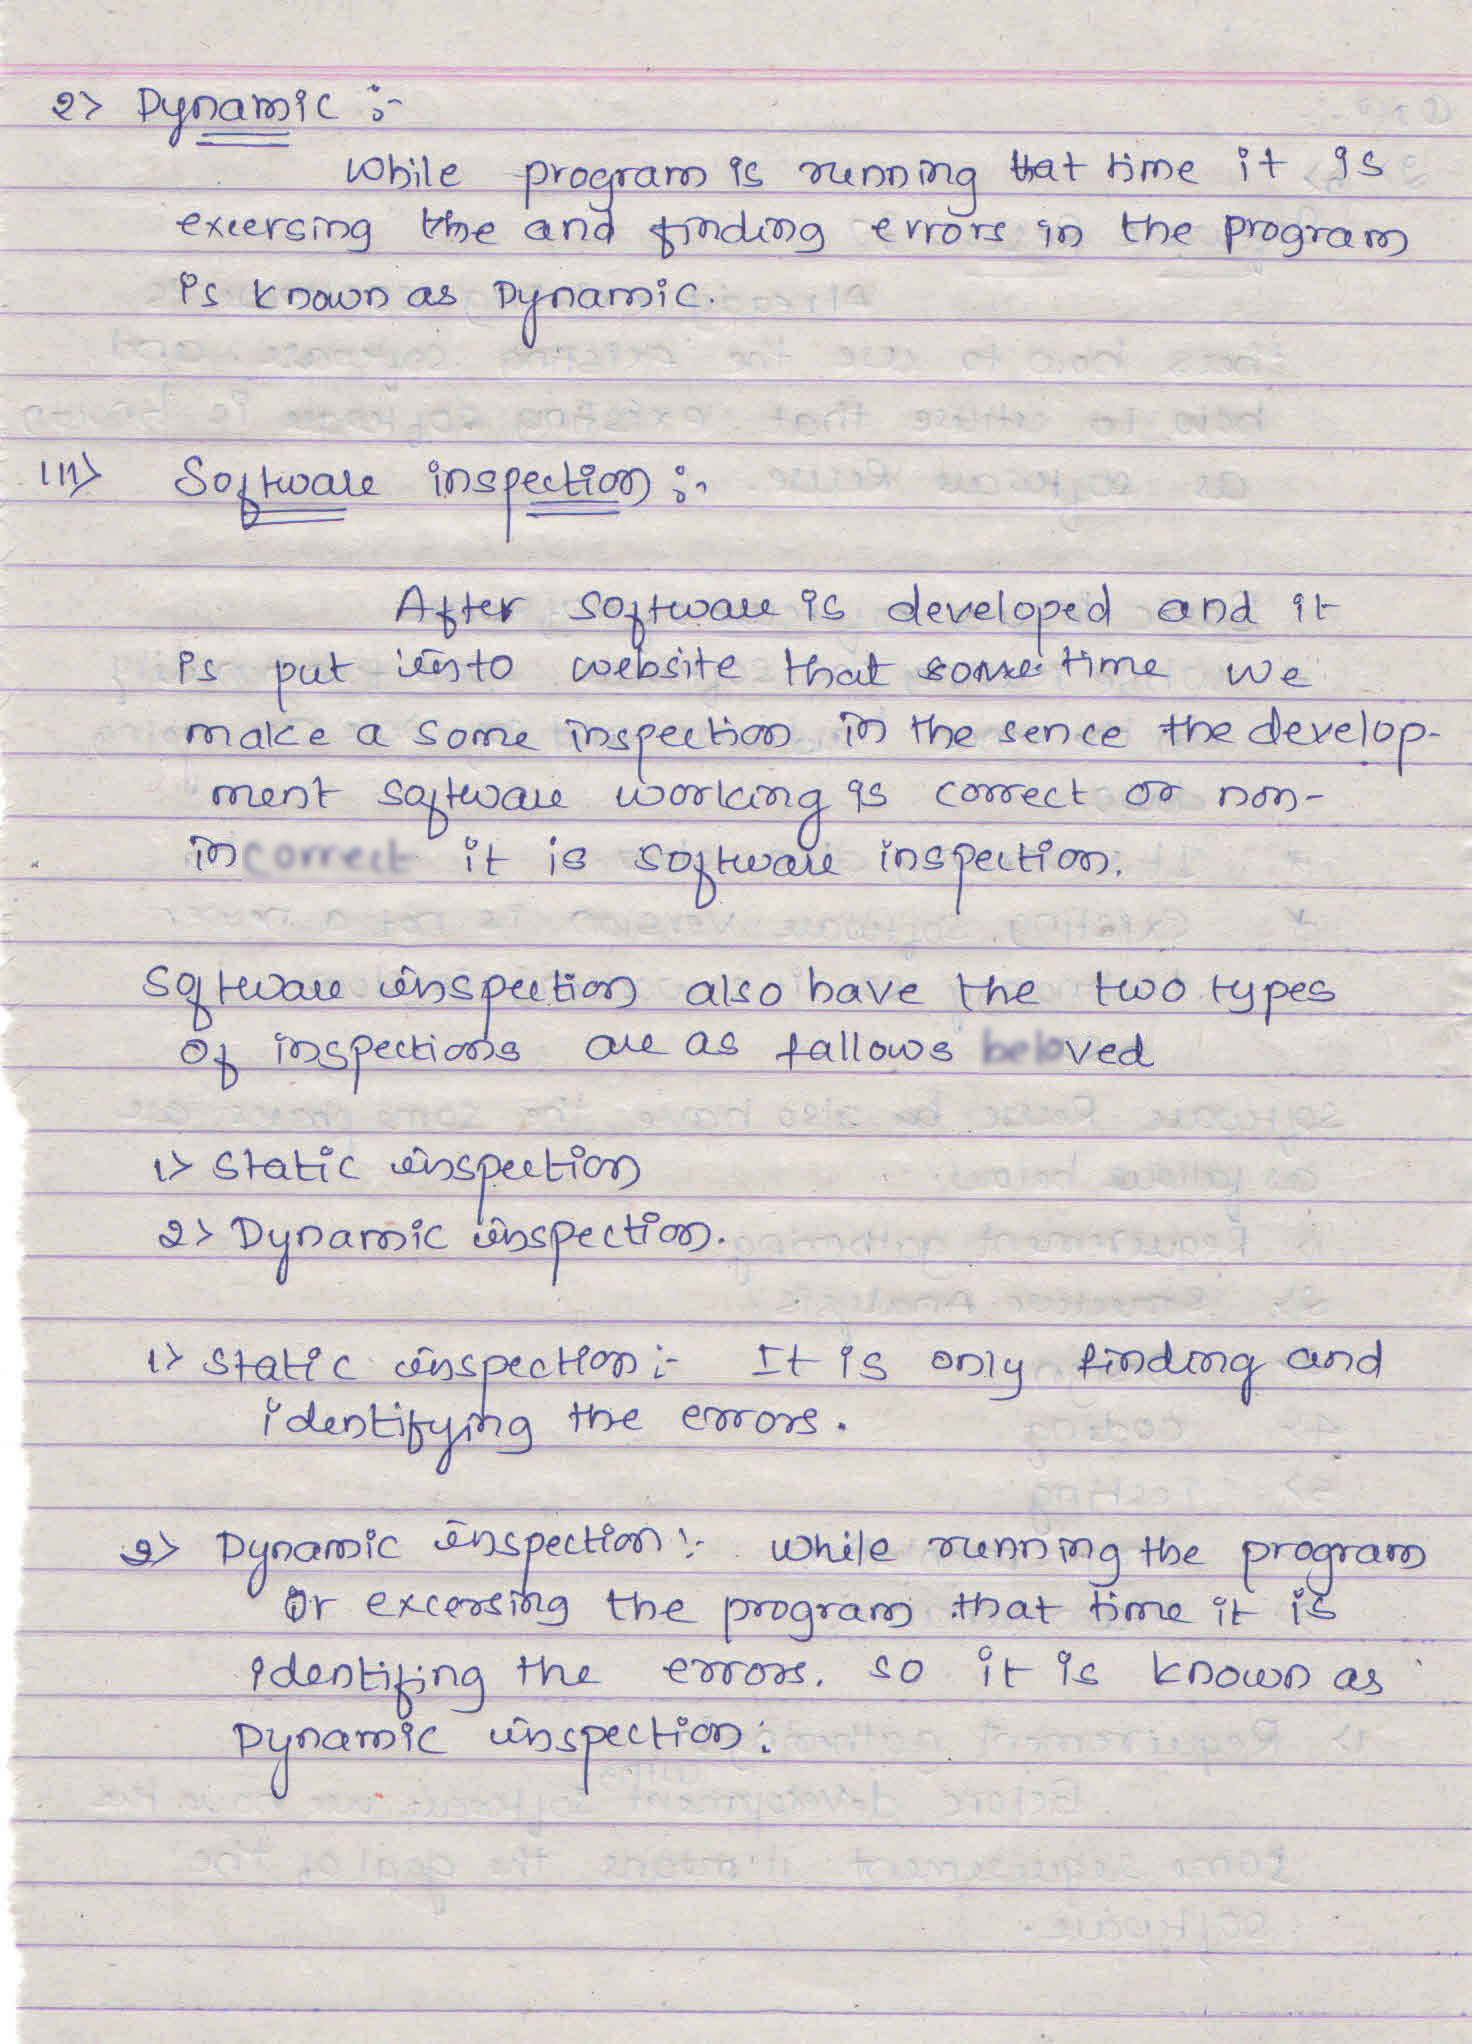 2> Dynamic :-
While program is running that time it is
excersing the and finding errors in the program
is known as Dynamic.
III> Software inspection :-
After software is developed and it
is put into website that some time we
make a some inspection in the sence the develop-
ment software working is correct or non-
in it is software inspection.
Software inspection also have the two types
of inspections are as fallows
1> Static inspection
2> Dynamic inspection.
1> Static inspection :- It is only finding and
identifying the errors.
2> Dynamic inspection :- While running the program
or excersing the program that time it is
identifing the errors. so it is known as
Dynamic inspection: